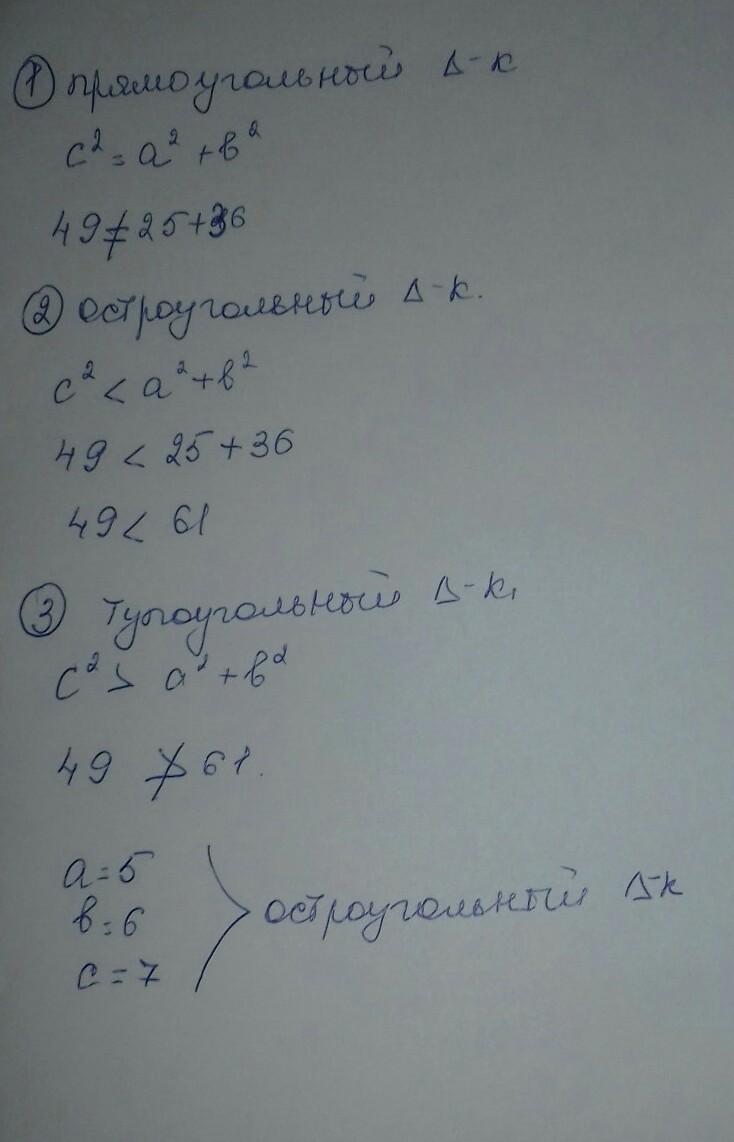 ① прямоугольный Δ-к
c² = a² + в²
49 ≠ 25 + 36
② остроугольный Δ-к.
c² < a² + в²
49 < 25 + 36
49 < 61
③ Тупоугольный Δ-к.
c² > a² + в²
49 ≯ 61.
a = 5
в = 6
c = 7
остроугольный Δ-к